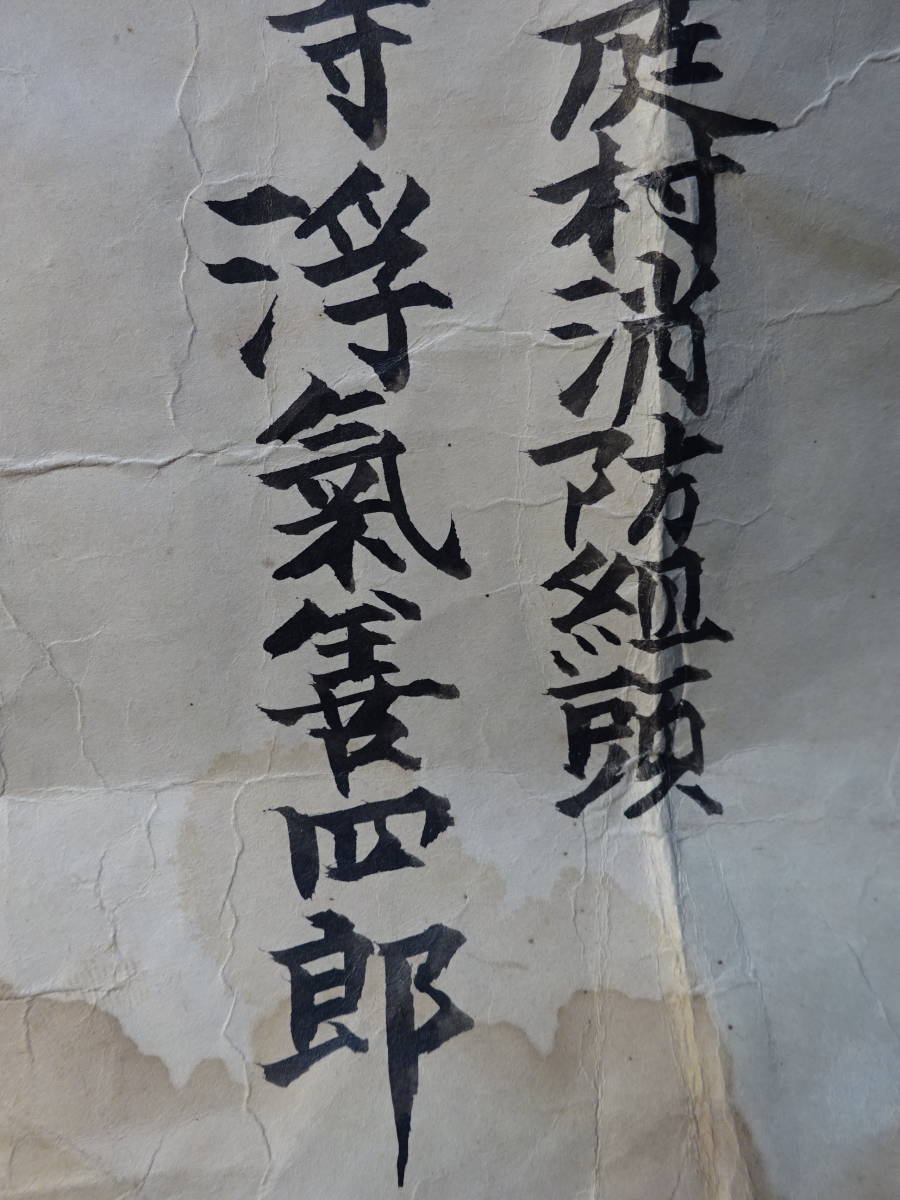 庭村消防組頭
寺浮氣善四郎